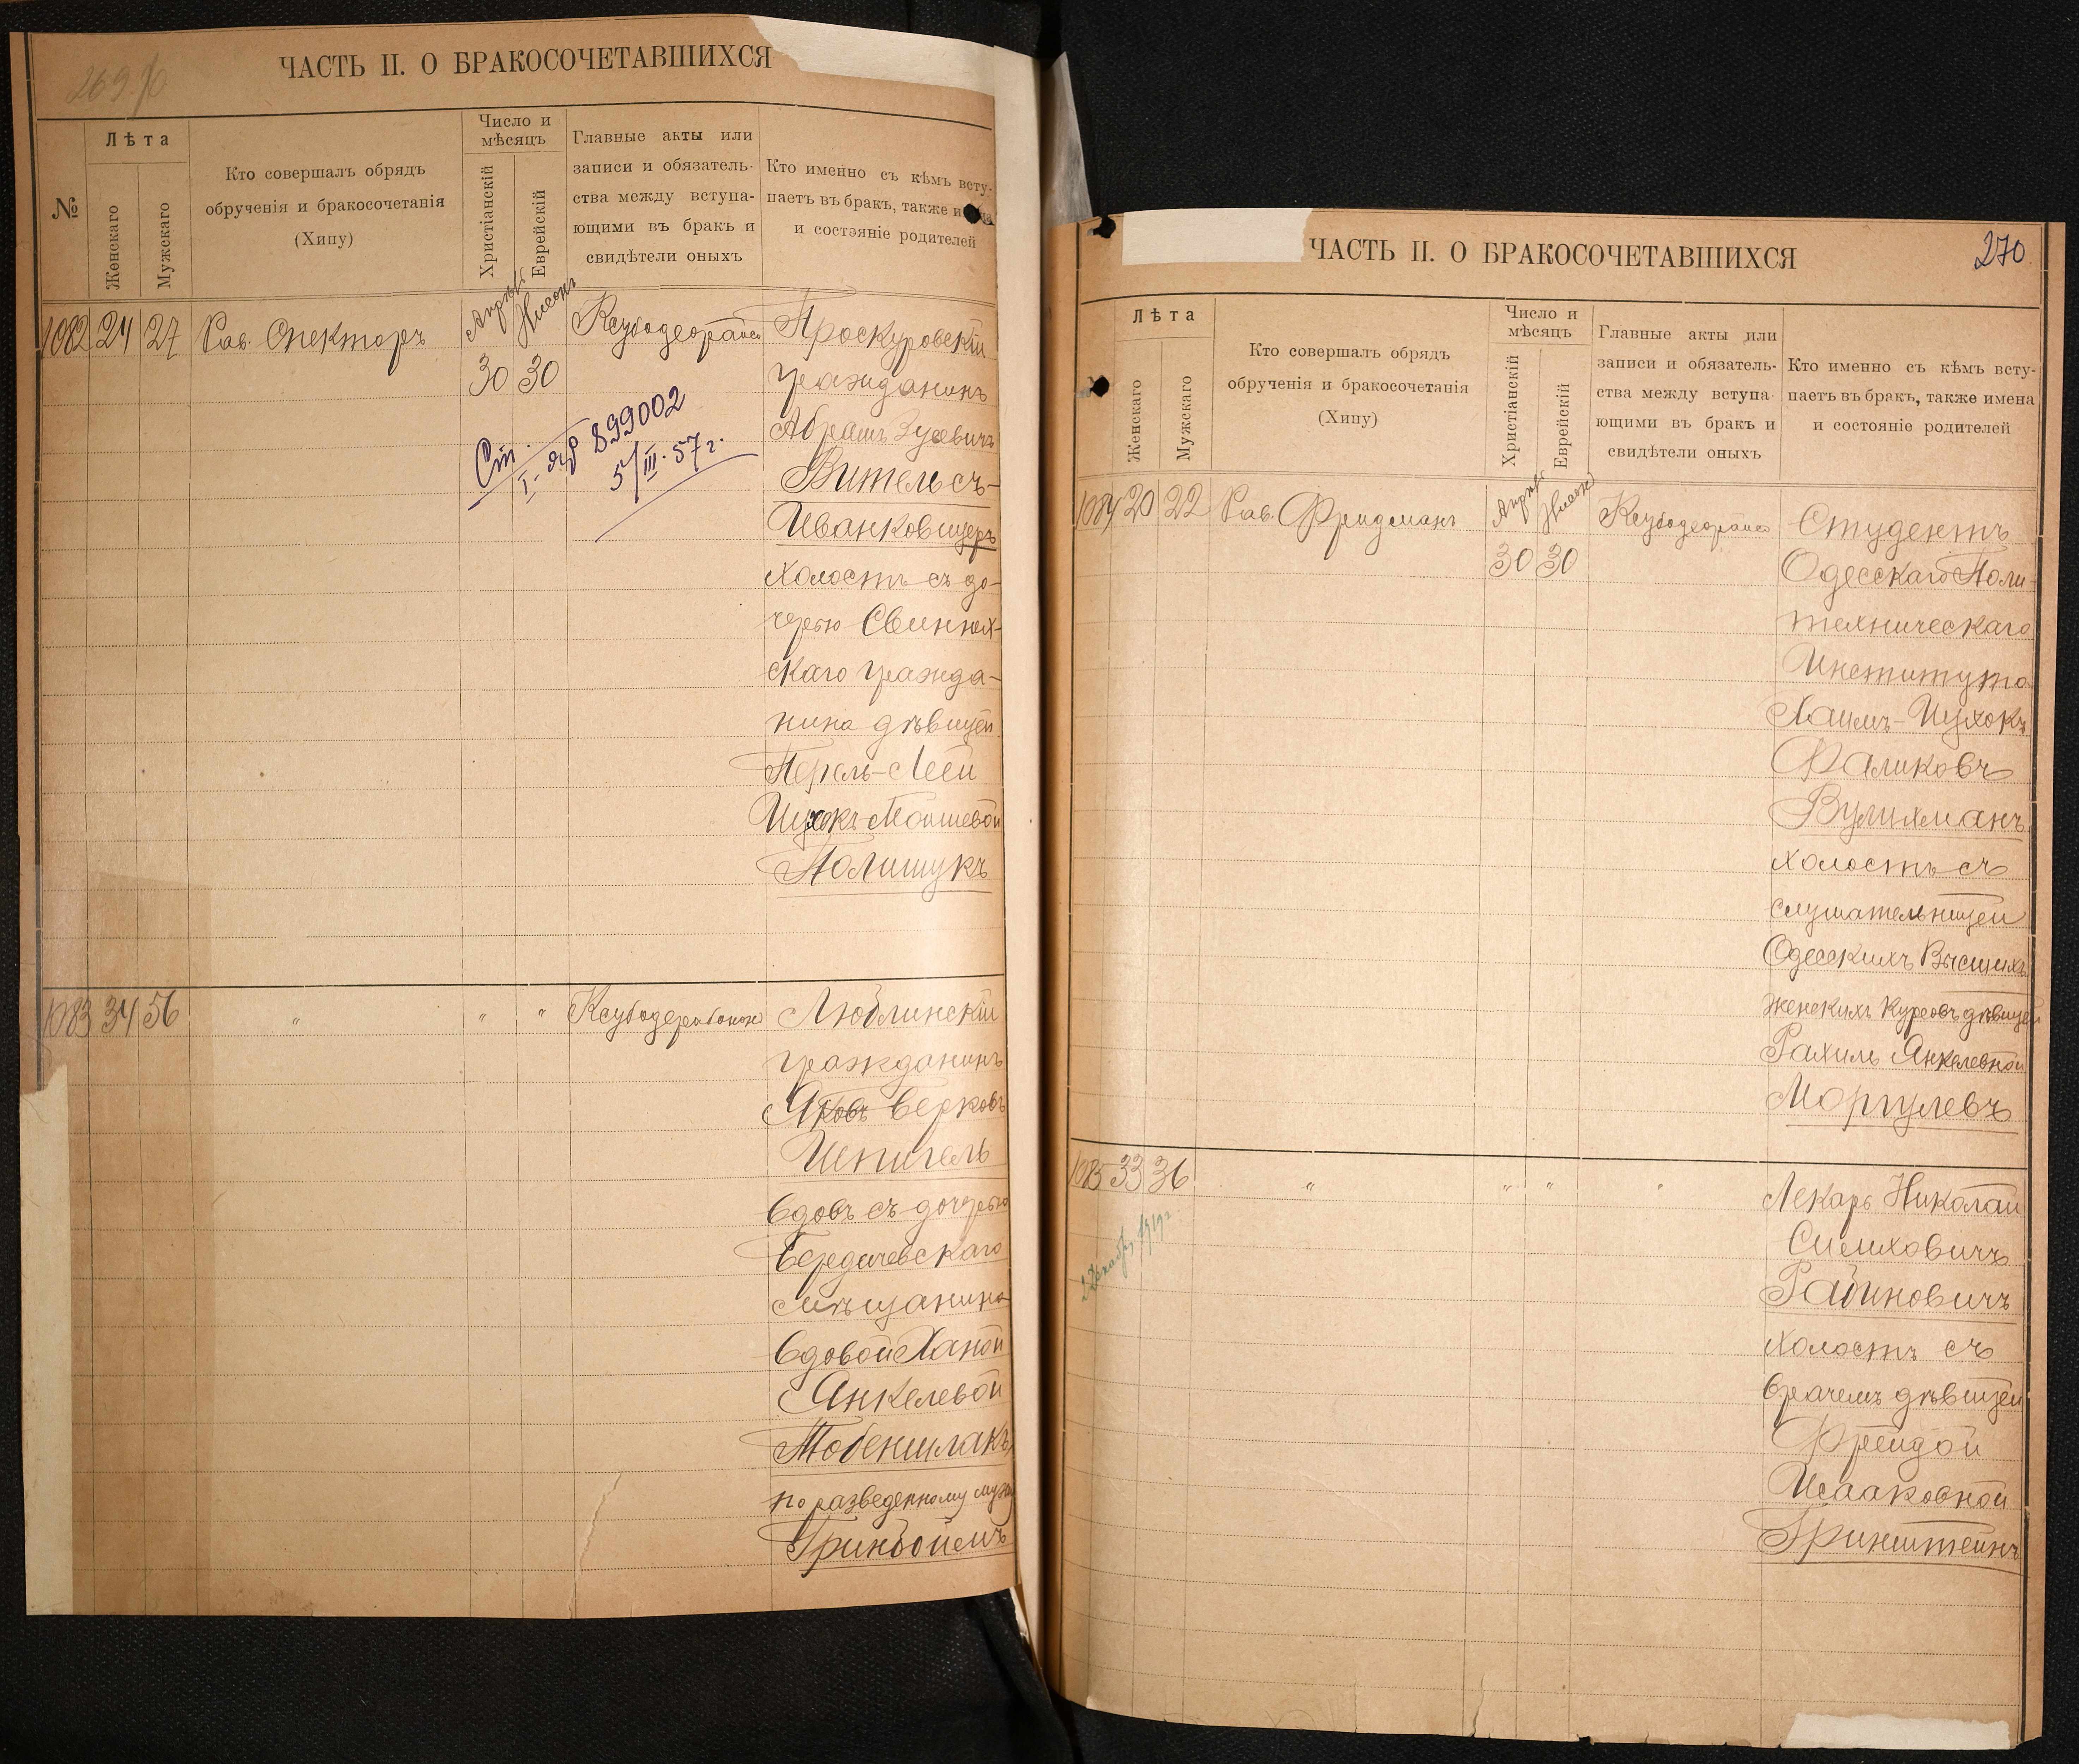 269 об
ЧАСТЬ II. О БРАКОСОЧЕТАВШИХСЯ
№
Лѣта
Женскаго
Мужскаго
Кто совершалъ обрядъ
обрученія и бракосочетанія
(Хипу)
Число и
мѣсяцъ
Христіанскій
Еврейскій
Главные акты или
записи и обязатель-
ства между вступа-
ющими въ бракъ и
свидѣтели оныхъ
Кто именно съ кѣмъ всту-
паетъ въ бракъ, также
и состояніе родителей
1082 24 27 Рав. Спекторъ
Апрѣль Нисонъ
30 30
Проскуровскій
гражданинъ
Абрамъ Зусевичъ
Вительсъ-
Иванковицеръ
холостъ съ до-
черью Свинюх-
скаго гражда-
нина дѣвицей
Перель-Леей
Ицхокъ-Мошевой
Полищукъ
899002
5/III. 57 г.
1083 34 56 " " "
Люблинскій
гражданинъ
Яковъ Берковъ
Шпигель
вдовъ съ дочерью
Бердичевскаго
мѣщанина
вдовой Ханой
Янкелевой
Тобеншлакъ
по разведенному мужу
Гринбоймъ
270
ЧАСТЬ II. О БРАКОСОЧЕТАВШИХСЯ
Лѣта
Женскаго
Мужскаго
Кто совершалъ обрядъ
обрученія и бракосочетанія
(Хипу)
Число и
мѣсяцъ
Христіанскій
Еврейскій
Главные акты или
записи и обязатель-
ства между вступа
ющими въ бракъ и
свидѣтели оныхъ
Кто именно съ кѣмъ всту-
паетъ въ бракъ, также имена
и состояніе родителей
1084 20 22 Рав. Фридманъ
Апрѣль Нисонъ
30 30
Студентъ
Одесскаго Поли-
техническаго
Института
Хаимъ-Ицхокъ
Фаликовъ
Вулихманъ
холостъ съ
слушательницей
Одесскихъ Высшихъ
Женскихъ Курсовъ дѣвицей
Рахиль Янкелевной
Моргулевъ
1085 33 36 " " " "
Лекарь Николай
Симховичъ
Рабиновичъ
холостъ съ
врачемъ дѣвицей
Фрейдой
Исааковной
Гринштейнъ